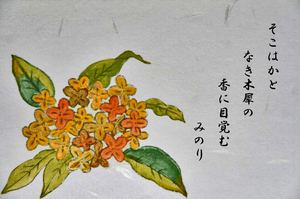 そこはかと
なき木犀の
香に目覚む
みのり